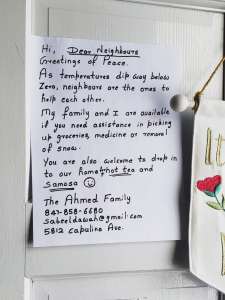 Hi, Dear Neighbours
Greetings of Peace.
As temperatures dip way below
Zero, neighbours are the ones to
help each other.
My family and I are available
if you need assistance in picking
up groceries, medicine or removal
of snow.
You are also welcome to drop in
to our home, hot tea and
Samosa ☺
The Ahmed Family
847-858-6680
sabeeldawah@gmail.com
5812 Capulina Ave.